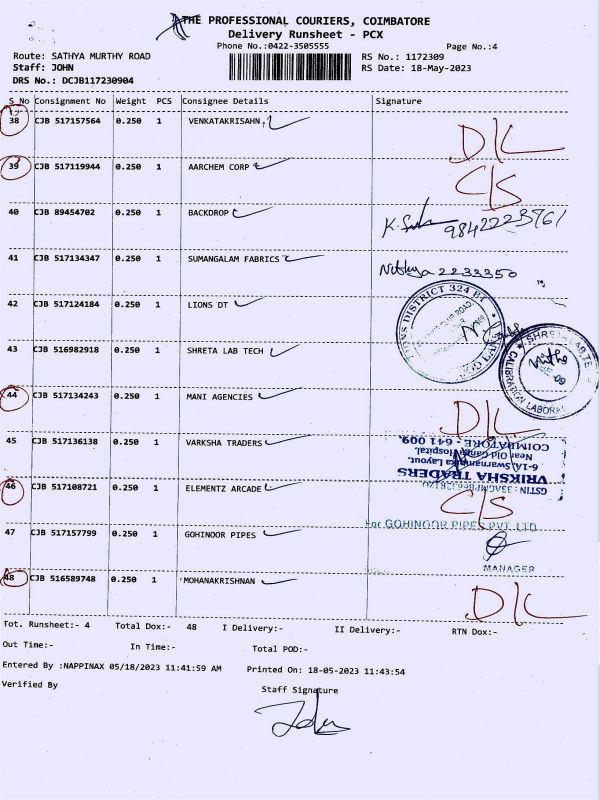 THE PROFESSIONAL COURIERS, COIMBATORE
Delivery Runsheet - PCX
Phone No.:0422-3505555 Page No.:4
Route: SATHYA MURTHY ROAD RS No.: 1172309
Staff: JOHN RS Date: 18-May-2023
DRS No.: DCJB117230904
S No Consignment No Weight PCS Consignee Details Signature
38 CJB 517157564 0.250 1 VENKATAKRISAHN. D/L
39 CJB 517119944 0.250 1 AARCHEM CORP C/S
40 CJB 89454702 0.250 1 BACKDROP
41 CJB 517134347 0.250 1 SUMANGALAM FABRICS Nithya 2233350
42 CJB 517124184 0.250 1 LIONS DT
43 CJB 516982918 0.250 1 SHRETA LAB TECH
44 CJB 517134243 0.250 1 MANI AGENCIES D/L
45 CJB 517136138 0.250 1 VARKSHA TRADERS
VRIKSHA TRADERS
6-1A, Swarnambika Layout,
Near Old Ganga Hospital,
COIMBATORE - 641 009.
46 CJB 517108721 0.250 1 ELEMENTZ ARCADE C/S
For GOHINOOR PIPES PVT. LTD
47 CJB 517157799 0.250 1 GOHINOOR PIPES
MANAGER
48 CJB 516589748 0.250 1 MOHANAKRISHNAN D/L
Tot. Runsheet:- 4 Total Dox:- 48 I Delivery:- II Delivery:- RTN Dox:-
Out Time:- In Time:- Total POD:-
Entered By :NAPPINAX 05/18/2023 11:41:59 AM Printed On: 18-05-2023 11:43:54
Verified By Staff Signature
John